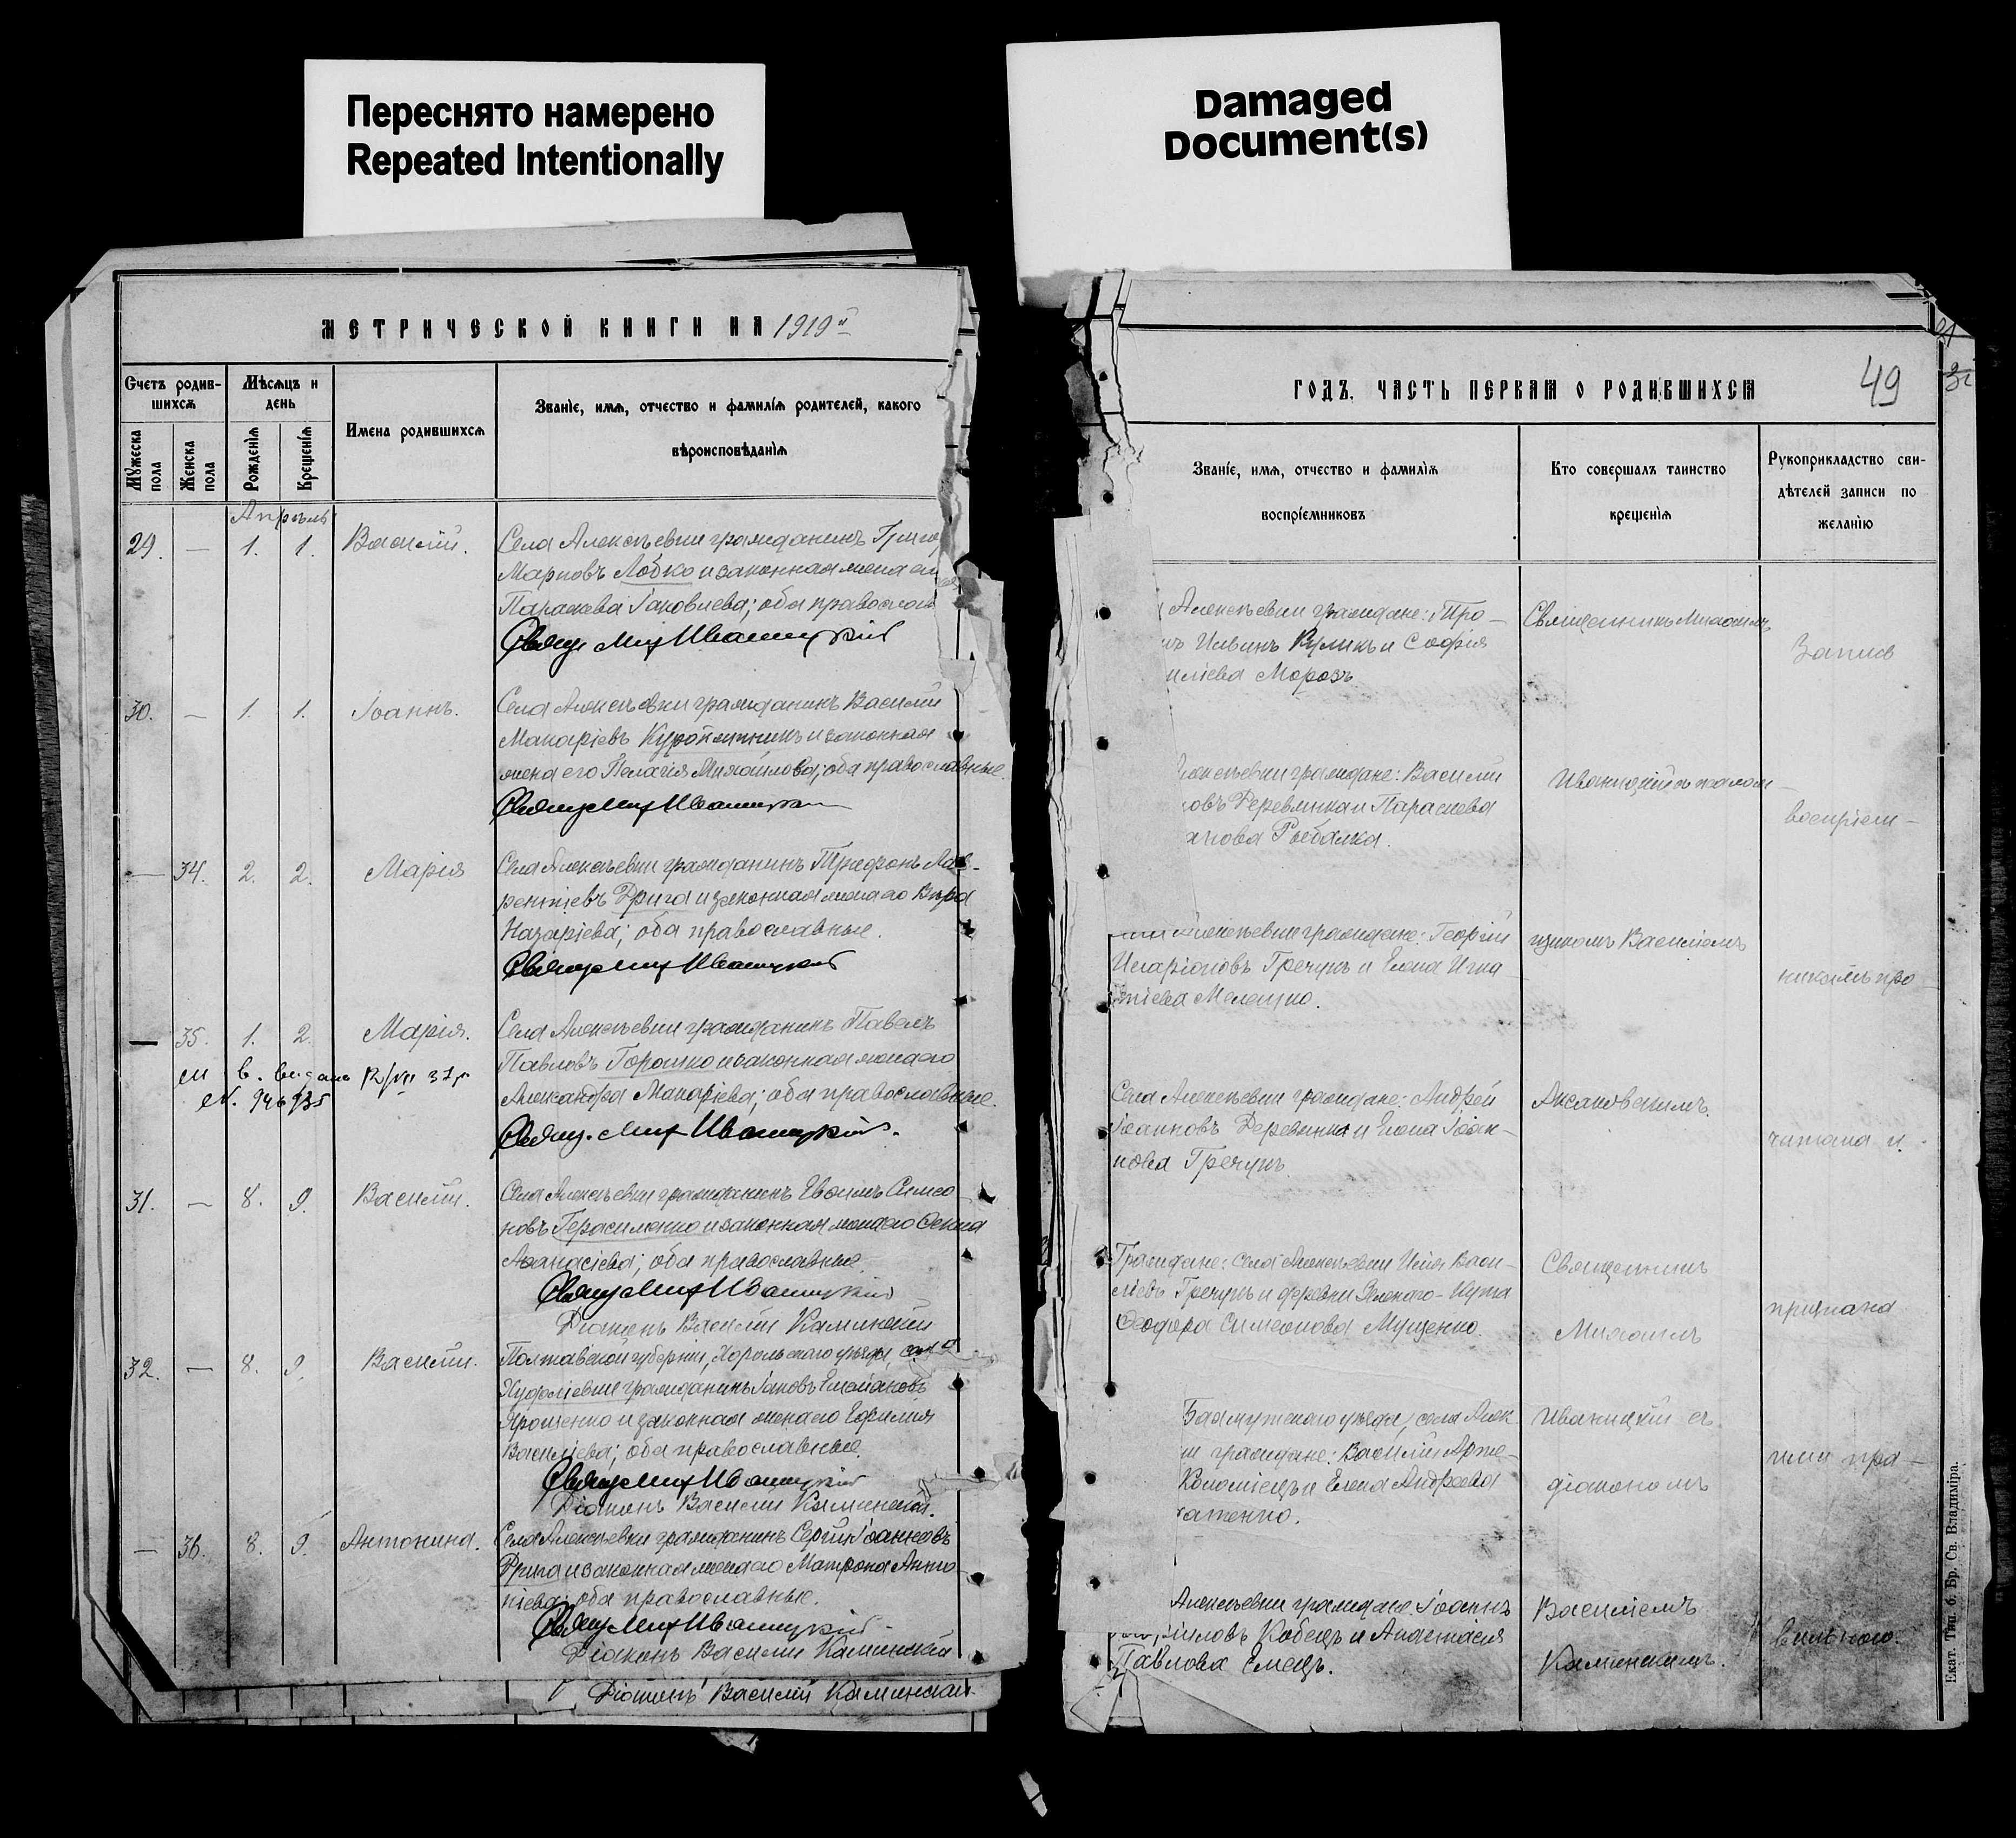 Переснято намерено
Repeated Intentionally
Damaged
Document(s)
МЕТРИЧЕСКОЙ КНИГИ НА 1919й
Счетъ родив-
шихся
Мѣсяцъ и
день
Мужеска
пола
Женска
пола
Рожденія
Крещенія
Имена родившихся
Званіе, имя, отчество и фамилія родителей, какого
вѣроисповѣданія
Апрѣль
29. — 1. 1. Василій.
Села Алексѣевки гражданинъ Григо
Марковъ Лобко и законная жена его
Параскева Іаковлева; оба православ
Свящ. Мих Иваницкій
30. — 1. 1. Іоаннъ.
Села Алексѣевки гражданинъ Василій
Макаріевъ и законная
жена его Пелагія Михайлова; оба православные.
Свящ Мих Иваницкій
— 34. 2. 2. Марія
Села Алексѣевки гражданинъ Трифонъ Лав-
рентіевъ Дрига и законная жена его Вѣра
Назаріева; оба православные.
Свящ Мих Иваницкій
— 35. 1. 2. Марія.
Села Алексѣевки гражданинъ Павелъ
Павловъ Горошко и законная жена его
Александра Макаріева; оба православные.
Свящ. Мих Иваницкій.
31. — 8. 9. Василій.
Села Алексѣевки гражданинъ Евѳимъ Симео
новъ Герасименко и законная жена его
Аѳанасіева; оба православные.
Свящ Мих Иваницкій
Діаконъ Василій Каминскій
32. — 8. 9. Василій.
Полтавской губерніи, Хорольскаго уѣзда, села
гражданинъ Іаковъ
Ярошенко и законная жена его Евфимія
Василіева; оба православные.
Свящ Мих Иваницкій
Діаконъ Василій Каминскій.
— 36. 8. 9. Антонина.
Села Алексѣевки гражданинъ Сергій Іоанновъ
Дрига и законная жена его Матрона Анто
ніева; оба православные.
Свящ Мих Иваницкій
Діаконъ Василій Каминскій
Діаконъ Василій Каминскій
ГОДЪ, ЧАСТЬ ПЕРВАЯ О РОДИВШИХСЯ
49
Званіе, имя, отчество и фамилія
воспріемниковъ
Кто совершалъ таинство
крещенія
Рукоприкладство сви-
дѣтелей записи по
желанію
Алексѣевки граждане: Тро-
Ильинъ Куликъ и Софія
иліева Морозъ
Священникъ Михаилъ
Запись
лексѣевки граждане: Василій
овъ Деревянка и Параскева
анова Рыбалка.
Иваницкій съ псалом-
воспріем-
Алексѣевки граждане: Георгій
Иларіоновъ Гречунъ и Елена Игна
тіева Мелешко.
щикомъ Василіемъ
никамъ про-
Села Алексѣевки граждане: Андрей
Іоанновъ Деревянка и Елена Іоан-
нова Гречунъ
Аксаковскимъ.
читана и
Граждане: села Алексѣевки Илія Васи-
ліевъ Гречунъ и деревни Зеленаго-Кута
Ѳеодора Симеонова Мущенко.
Священникъ
Михаилъ
признана
Бахмутскаго уѣзда, села Алек
и граждане: Василій Арте-
Коломіецъ и Елена Андреева
атенко.
Иваницкій съ
діакономъ
ими пра-
Алексѣевки граждане: Іоаннъ
иловъ Кобецъ и Анастасія
Павлова Емецъ.
Василіемъ
Каминскимъ.
вильною.
Екат. Тип. б. Бр. Св. Владиміра.